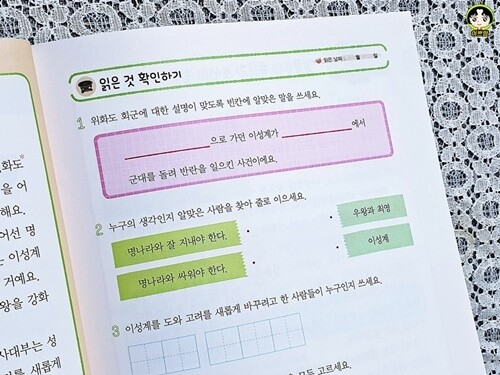 읽은 것 확인하기
읽은 날짜 월 일
1 위화도 회군에 대한 설명이 맞도록 빈칸에 알맞은 말을 쓰세요.
으로 가던 이성계가 에서
군대를 돌려 반란을 일으킨 사건이에요.
2 누구의 생각인지 알맞은 사람을 찾아 줄로 이으세요.
명나라와 잘 지내야 한다.
우왕과 최영
명나라와 싸워야 한다.
이성계
3 이성계를 도와 고려를 새롭게 바꾸려고 한 사람들이 누구인지 쓰세요.
모두 고르세요.
위화도
을 어
해요.
어선 명
이성계
거예요.
왕을 강화
사대부는 성
를 새롭게